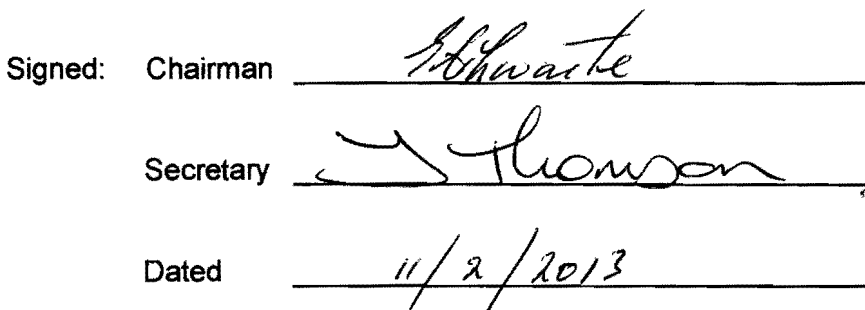 Signed: Chairman
Secretary Thomson
Dated 11/2/2013